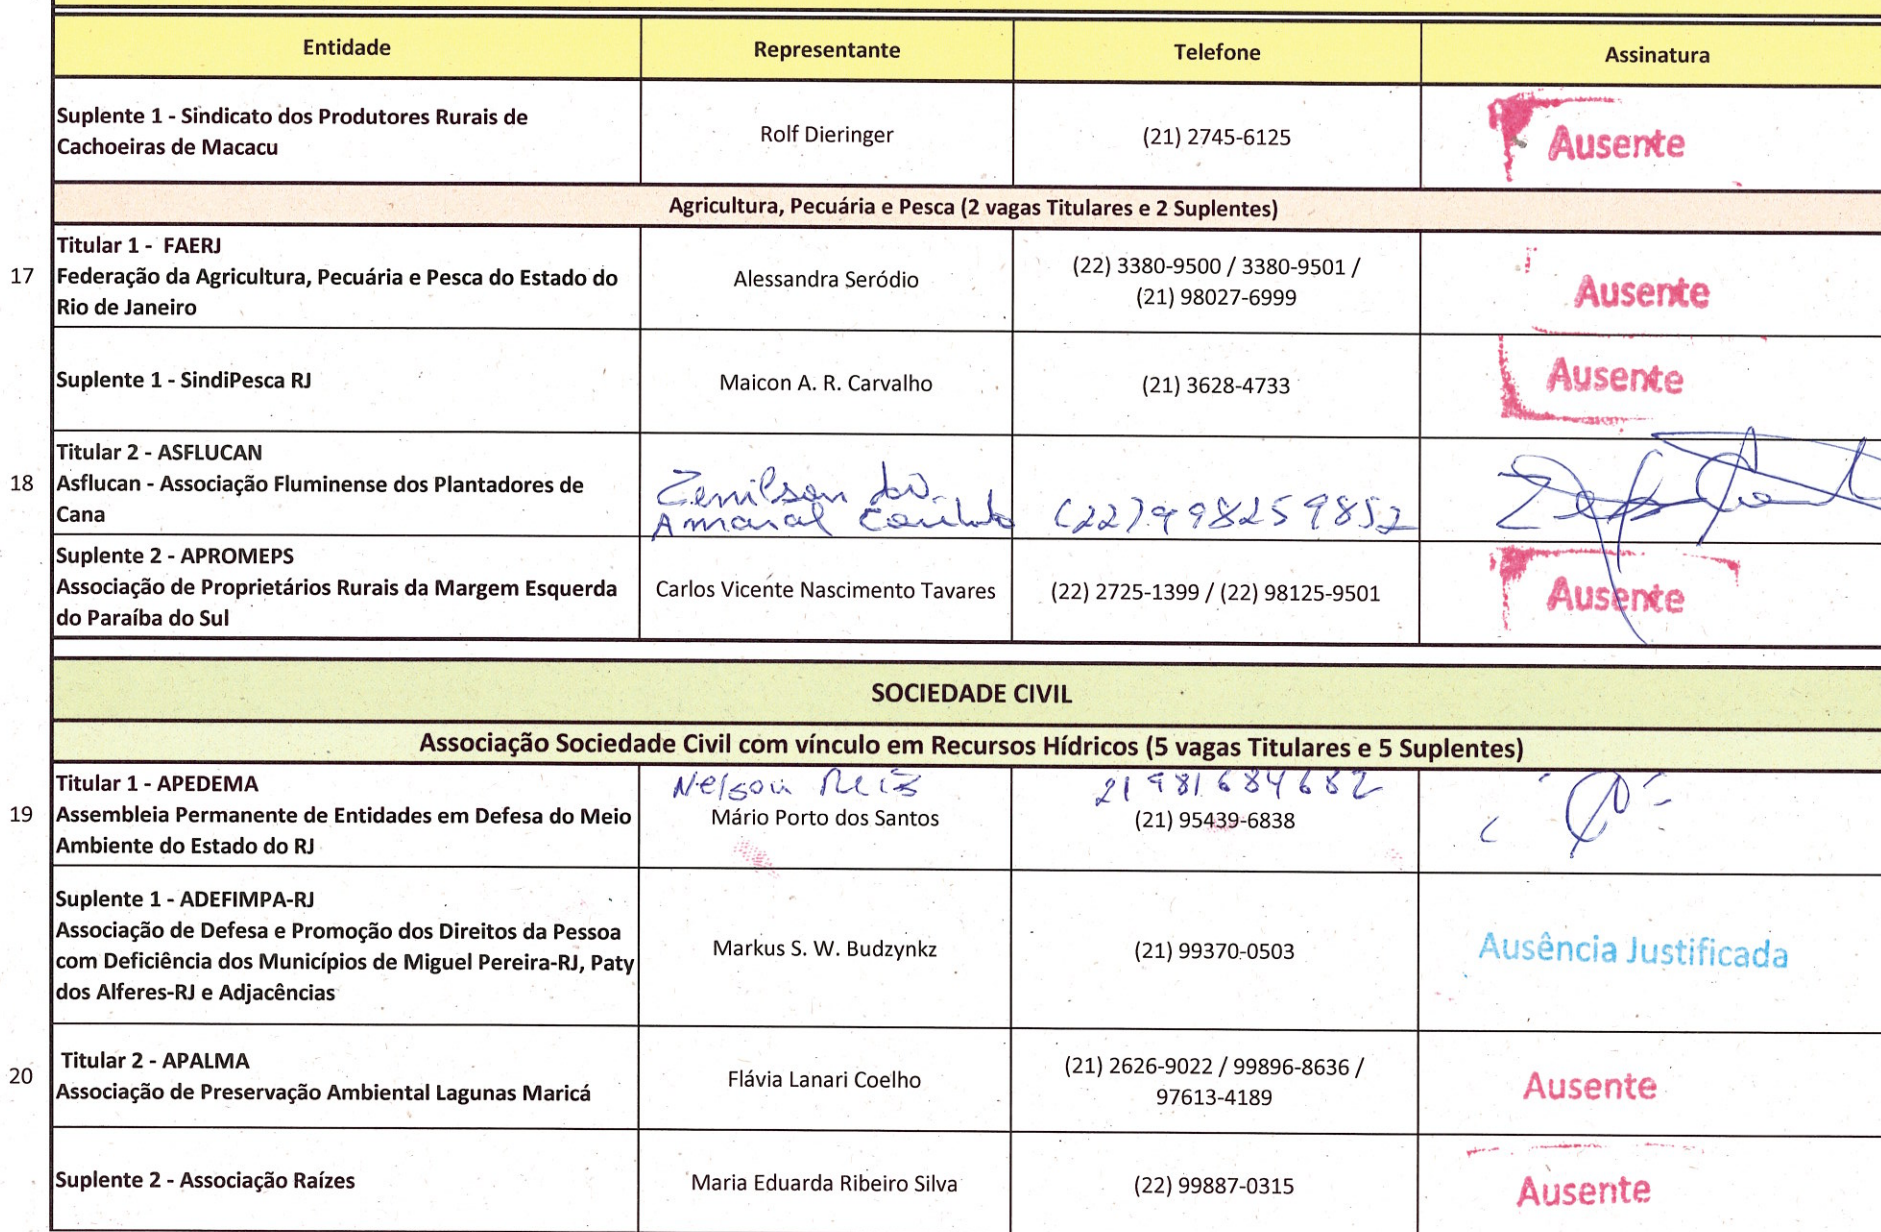 Entidade Representante Telefone Assinatura
Suplente 1 - Sindicato dos Produtores Rurais de
Cachoeiras de Macacu
Rolf Dieringer
(21) 2745-6125
Ausente
Agricultura, Pecuária e Pesca (2 vagas Titulares e 2 Suplentes)
17
Titular 1 - FAERJ
Federação da Agricultura, Pecuária e Pesca do Estado do
Rio de Janeiro
Alessandra Seródio
(22) 3380-9500 / 3380-9501 /
(21) 98027-6999
Ausente
Suplente 1 - SindiPesca RJ
Maicon A. R. Carvalho
(21) 3628-4733
Ausente
18
Titular 2 - ASFLUCAN
Asflucan - Associação Fluminense dos Plantadores de
Cana
Zenilson do
Amaral Coutinho
(22) 998259852
Suplente 2 - APROMEPS
Associação de Proprietários Rurais da Margem Esquerda
do Paraíba do Sul
Carlos Vicente Nascimento Tavares
(22) 2725-1399 / (22) 98125-9501
Ausente
SOCIEDADE CIVIL
Associação Sociedade Civil com vínculo em Recursos Hídricos (5 vagas Titulares e 5 Suplentes)
19
Titular 1 - APEDEMA
Assembleia Permanente de Entidades em Defesa do Meio
Ambiente do Estado do RJ
Nelson Reis
Mário Porto dos Santos
21981684682
(21) 95439-6838
Suplente 1 - ADEFIMPA-RJ
Associação de Defesa e Promoção dos Direitos da Pessoa
com Deficiência dos Municípios de Miguel Pereira-RJ, Paty
dos Alferes-RJ e Adjacências
Markus S. W. Budzynkz
(21) 99370-0503
Ausência Justificada
20
Titular 2 - APALMA
Associação de Preservação Ambiental Lagunas Maricá
Flávia Lanari Coelho
(21) 2626-9022 / 99896-8636 /
97613-4189
Ausente
Suplente 2 - Associação Raízes
Maria Eduarda Ribeiro Silva
(22) 99887-0315
Ausente